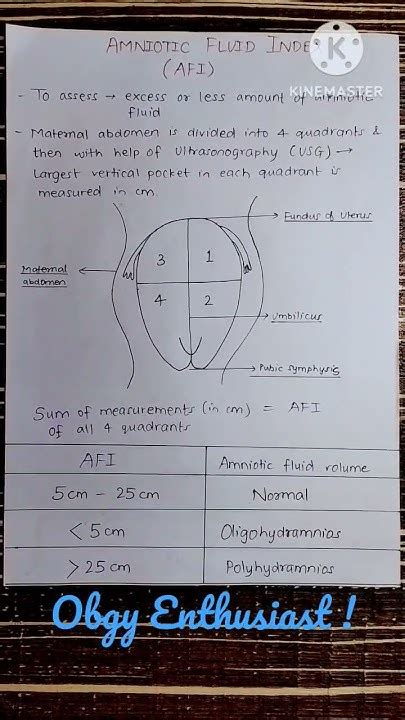 AMNIOTIC FLUID INDEX
(AFI)
KINEMASTER
- To assess → excess or less amount of amniotic
fluid
- Maternal abdomen is divided into 4 quadrants &
then with help of Ultrasonography (USG) →
largest vertical pocket in each quadrant is
measured in cm.
Fundus of Uterus
3 1
Maternal
abdomen
4 2
Umbilicus
Pubic symphysis
Sum of measurements (in cm) = AFI
of all 4 quadrants
AFI Amniotic fluid volume
5cm - 25cm Normal
< 5cm Oligohydramnios
> 25cm Polyhydramnios
Obgy Enthusiast !